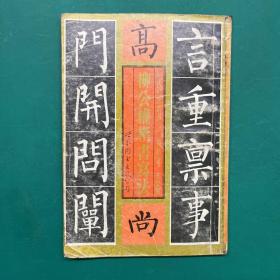 言重禀事
高
柳公權楷書法
尚
門開問闡